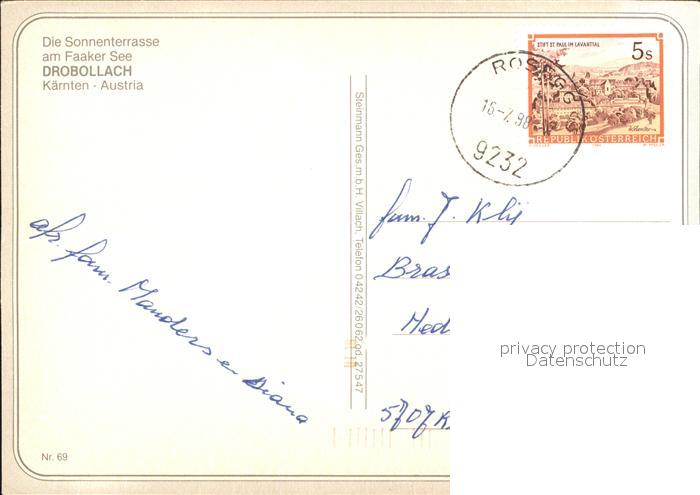 Die Sonnenterrasse
am Faaker See
DROBOLLACH
Kärnten - Austria
STIFT ST. PAUL IM LAVANTTAL
5s
REPUBLIK ÖSTERREICH
ROSEGG
16.-7.98
9232
Steinmann Ges.m.b.H. Villach, Telefon 04242/26062 od. 27547
fam. J.
Bras
Med
5707
afz. fam. Manders en Diana
privacy protection
Datenschutz
Nr. 69